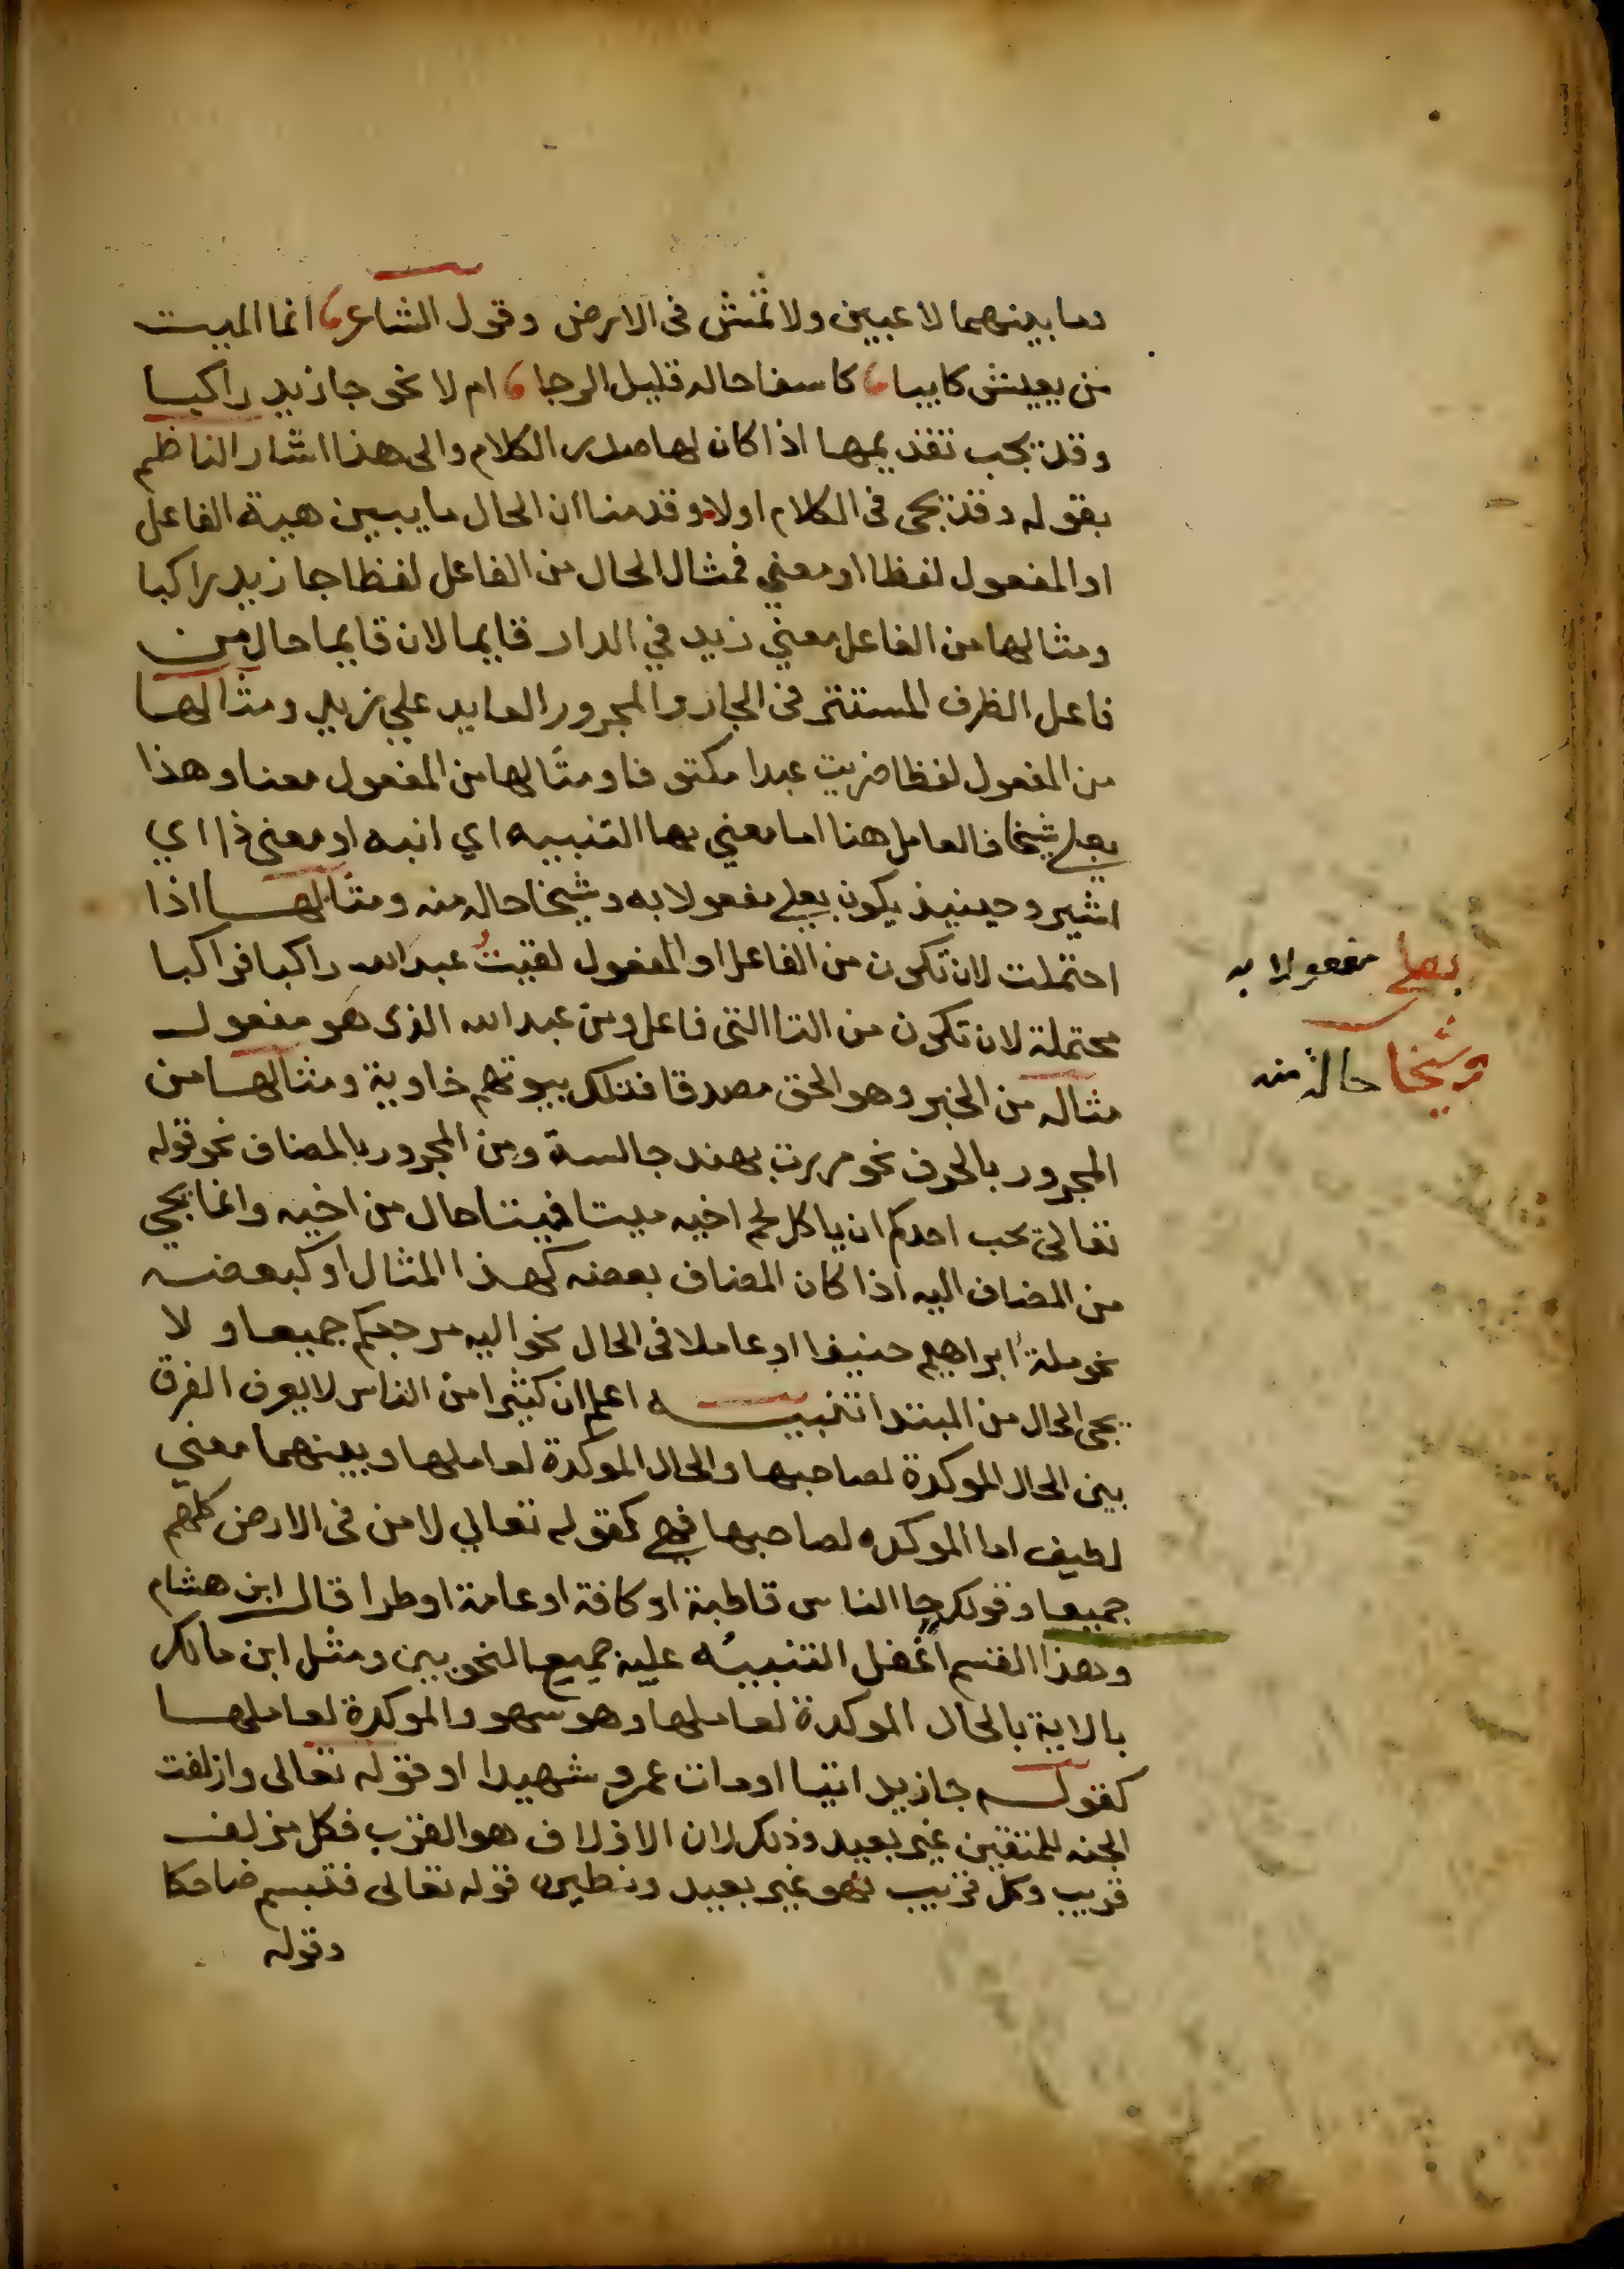 وما بينهما لاعبين ولا تمش في الارض وقول الشاعر انما الميت
من يعيش كايبا كاسفا حاله قليل الرجا ام لا نحو جا زيد راكبا
وقد يجب تقديمها اذا كان لها صدر الكلام والى هذا اشار الناظم
بقوله وقد يجى في الكلام اولا وقدمنا ان الحال ما يبين هية الفاعل
او المفعول لفظا او معني فمثال الحال من الفاعل لفظا جا زيد راكبا
ومثالها من الفاعل معني زيد في الدار قايما لان قايما حال من
فاعل الظرف المستتر في الجار والمجرور العايد علي زيد ومثالها
من المفعول لفظا ضربت عبدا مكتوفا ومثالها من المفعول معنا وهذا
بعلي شيخا فالعامل هنا اما معني ها التنبيه اي انبه او معنى ذا اي
اشير وحينيذ يكون بعلي مفعولا به وشيخا حال منه ومثالها اذا
احتملت لان تكون من الفاعل او المفعول لقيتُ عبد الله راكبا فراكبا
محتملة لان تكون من التا التي فاعل ومن عبد الله الذي هو مفعول
مثاله من الخبر وهو الحق مصدقا فتلك بيوتهم خاوية ومثالها من
المجرور بالحرف نحو مررت بهند جالسة ومن المجرور بالمضاف نحو قوله
تعالى يحب احدكم ان ياكل لحم اخيه ميتا فميتا حال من اخيه وانما يجي
من المضاف اليه اذا كان المضاف بعضه كهذا المثال او كبعضه
نحو ملة ابراهيم حنيفا او عاملا في الحال نحو اليه مرجعكم جميعا ولا
يجى الحال من المبتدا تنبيه اعلم ان كثيرا من الناس لا يعرف الفرق
بين الحال الموكدة لصاحبها والحال الموكدة لعاملها وبينهما معني
لطيف اما الموكده لصاحبها فهي كقوله تعالي لامن في الارض كلهم
جميعا وقولك جا الناس قاطبة او كافة او عامة او طرا قال ابن هشام
وهذا القسم اغفل التنبيه عليه جميع النحويين ومثل ابن مالك
بالاية بالحال الموكدة لعاملها وهو سهو والموكدة لعاملها
كقوله جا زيد اتيا او مات عمرو شهيدا او قوله تعالى وازلفت
الجنه للمتقين غير بعيد وذلك لان الازلاف هو القرب فكل مزلف
قريب وكل قريب فهو غير بعيد ونظيره قوله تعالى فتبسم ضاحكا
وقوله
بعلي مفعولا به
وشيخا حال منه